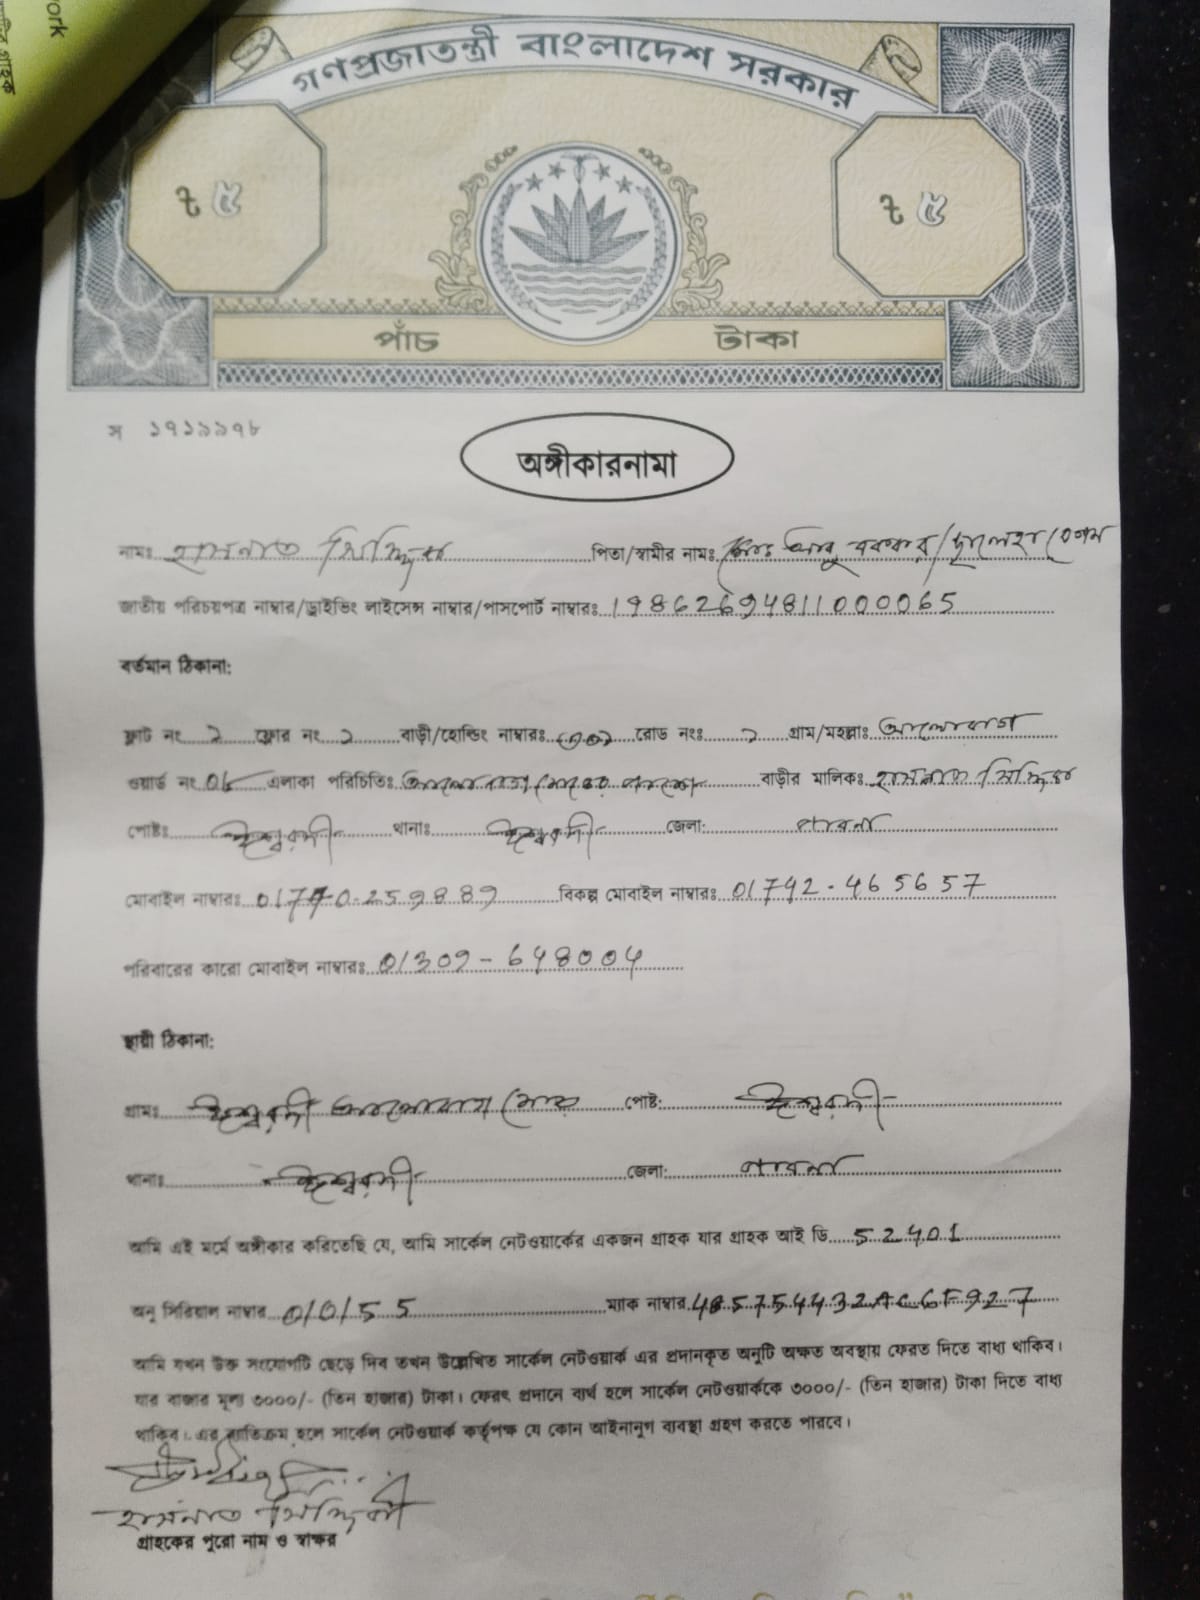 work
গণপ্রজাতন্ত্রী বাংলাদেশ সরকার
ট ৫ ট ৫
পাঁচ টাকা
স ১৭১৯৯৭৮
অঙ্গীকারনামা
নামঃ হাসনাত সিদ্দিকী পিতা/স্বামীর নামঃ মোঃ আবু বককার/ বেগম
জাতীয় পরিচয়পত্র নাম্বার/ড্রাইভিং লাইসেন্স নাম্বার/পাসপোর্ট নাম্বারঃ 19862694811000065
বর্তমান ঠিকানা:
ফ্লাট নং ২ ফ্লোর নং ১ বাড়ী/হোল্ডিং নাম্বারঃ রোড নংঃ ১ গ্রাম/মহল্লাঃ আলোবাগ
ওয়ার্ড নং এলাকা পরিচিতিঃ আলোবাগ মোড়ের পাশে বাড়ীর মালিকঃ হাসনাত সিদ্দিকী
পোষ্টঃ ঈশ্বরদী থানাঃ ঈশ্বরদী জেলা: পাবনা
মোবাইল নাম্বারঃ 01740-259889 বিকল্প মোবাইল নাম্বারঃ 01742-465657
পরিবারের কারো মোবাইল নাম্বারঃ 01309-648004
স্থায়ী ঠিকানা:
গ্রামঃ ঈশ্বরদী আলোবাগ মোড় পোষ্ট: ঈশ্বরদী
থানাঃ ঈশ্বরদী জেলা: পাবনা
আমি এই মর্মে অঙ্গীকার করিতেছি যে, আমি সার্কেল নেটওয়ার্কের একজন গ্রাহক যার গ্রাহক আই ডি 52401
অনু সিরিয়াল নাম্বার 010155 ম্যাক নাম্বার 485754432AC6F927
আমি যখন উক্ত সংযোগটি ছেড়ে দিব তখন উল্লেখিত সার্কেল নেটওয়ার্ক এর প্রদানকৃত অনুটি অক্ষত অবস্থায় ফেরত দিতে বাধ্য থাকিব।
যার বাজার মূল্য ৩০০০/- (তিন হাজার) টাকা। ফেরৎ প্রদানে ব্যর্থ হলে সার্কেল নেটওয়ার্ককে ৩০০০/- (তিন হাজার) টাকা দিতে বাধ্য
থাকিব। এর ব্যতিক্রম হলে সার্কেল নেটওয়ার্ক কর্তৃপক্ষ যে কোন আইনানুগ ব্যবস্থা গ্রহণ করতে পারবে।
হাসনাত সিদ্দিকী
গ্রাহকের পুরো নাম ও স্বাক্ষর